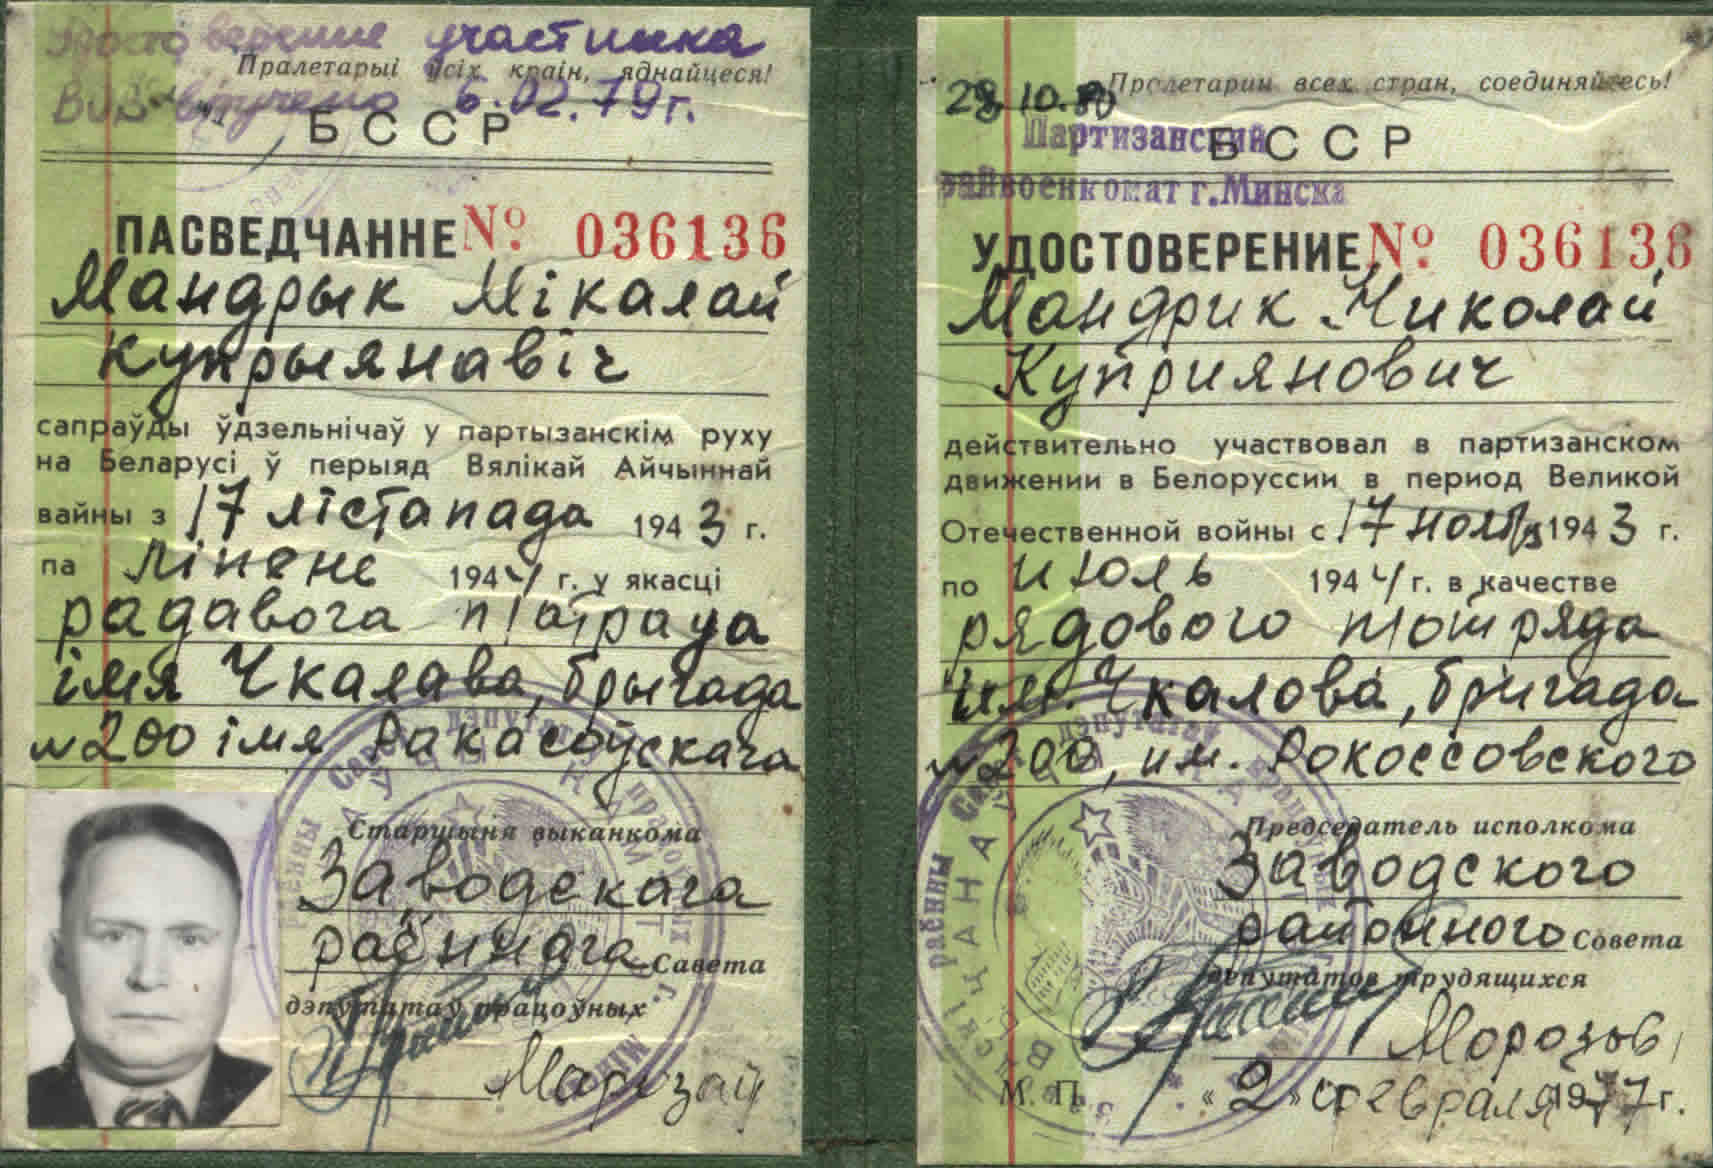 Удостоверение участника
Пралетарыі ўсіх краін, яднайцеся!
ВОВ вручено 6.02.79г.
БССР
ПАСВЕДЧАННЕ № 036136
Мандрык Мікалай
Купрыянавіч
сапраўды ўдзельнічаў у партызанскім руху
на Беларусі ў перыяд Вялікай Айчыннай
вайны з 17 лістапада 1943 г.
па ліпень 1944 г. у якасці
радавога п/атрада
імя Чкалава, брыгада
№200 імя Ракасоўскага
Старшыня выканкома
Заводскага
раённага Савета
дэпутатаў працоўных
Марозаў
Пролетарии всех стран, соединяйтесь!
28.10.80
БССР
Партизанский
райвоенкомат г.Минска
УДОСТОВЕРЕНИЕ № 036136
Мандрик Николай
Куприянович
действительно участвовал в партизанском
движении в Белоруссии в период Великой
Отечественной войны с 17 ноября 1943 г.
по июль 1944 г. в качестве
рядового п/отряда
им. Чкалова, бригада
№200, им. Рокоссовского
Председатель исполкома
Заводского
районного Совета
депутатов трудящихся
Морозов
М. П. «2» февраля 1977 г.